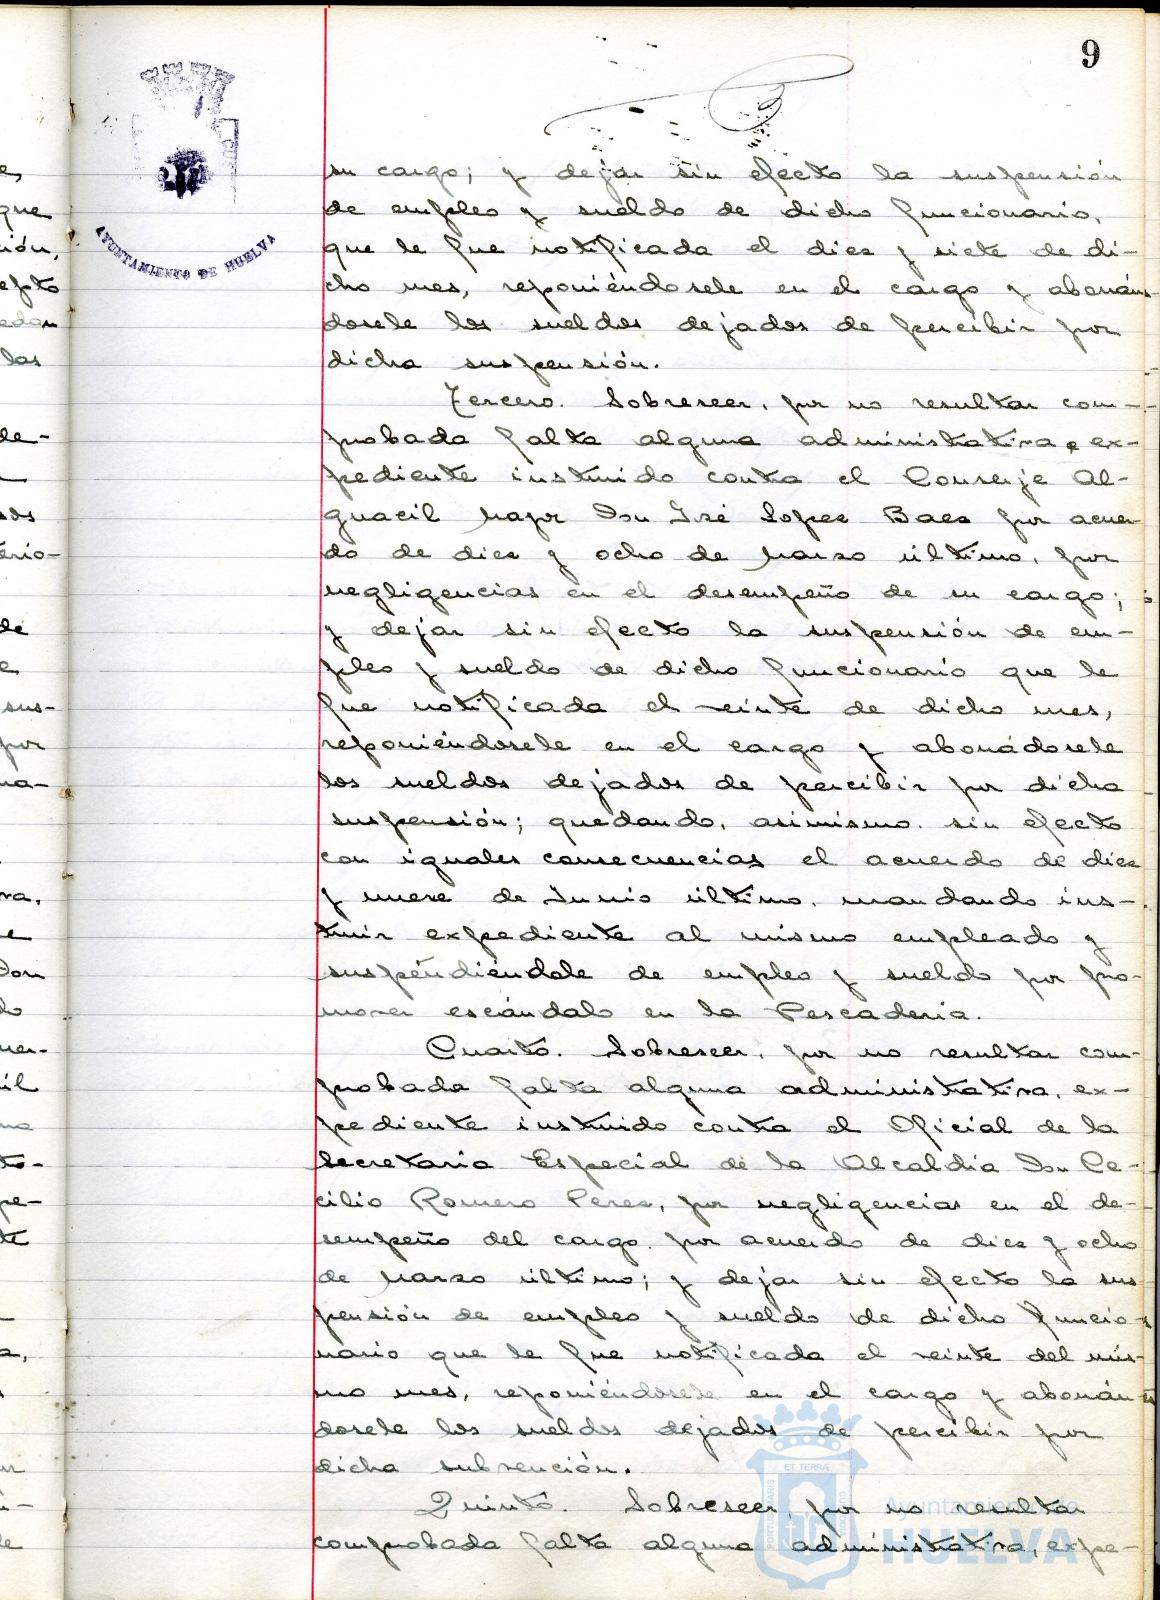 9
AYUNTAMIENTO DE HUELVA
su cargo; y dejar sin efecto la suspensión
de empleo y sueldo de dicho funcionario,
que le fue notificada el diez y siete de di-
cho mes, reponiéndosele en el cargo y abonán-
dosele los sueldos dejados de percibir por
dicha suspensión.
Tercero. Sobreseer, por no resultar com-
probada falta alguna administrativa, ex-
pediente instruido contra el Conserje Al-
guacil Mayor Don José Lopez Baez por acuer-
do de diez y ocho de Marzo último, por
negligencias en el desempeño de su cargo;
y dejar sin efecto la suspensión de em-
pleo y sueldo de dicho funcionario que le
fue notificada el veinte de dicho mes,
reponiéndosele en el cargo y abonádosele
los sueldos dejados de percibir por dicha
suspensión; quedando, asimismo, sin efecto
con iguales consecuencias el acuerdo de diez
y nueve de Junio último, mandando ins-
truir expediente al mismo empleado y
suspendiéndole de empleo y sueldo por pro-
mover escándalo en la Pescadería.
Cuarto. Sobreseer, por no resultar com-
probada falta alguna administrativa, ex-
pediente instruido contra el Oficial de la
Secretaria Especial de la Alcaldía Don Ce-
cilio Romero Perez, por negligencias en el de-
sempeño del cargo, por acuerdo de diez y ocho
de Marzo último; y dejar sin efecto la sus-
pensión de empleo y sueldo de dicho funcio-
nario que le fue notificada el veinte del mis-
mo mes, reponiéndosele en el cargo y abonán-
dosele los sueldos dejados de percibir por
dicha subvención.
Quinto. Sobreseer, por no resultar
comprobada falta alguna administrativa, expe-
ET TERRÆ
Ayuntamiento de
HUELVA